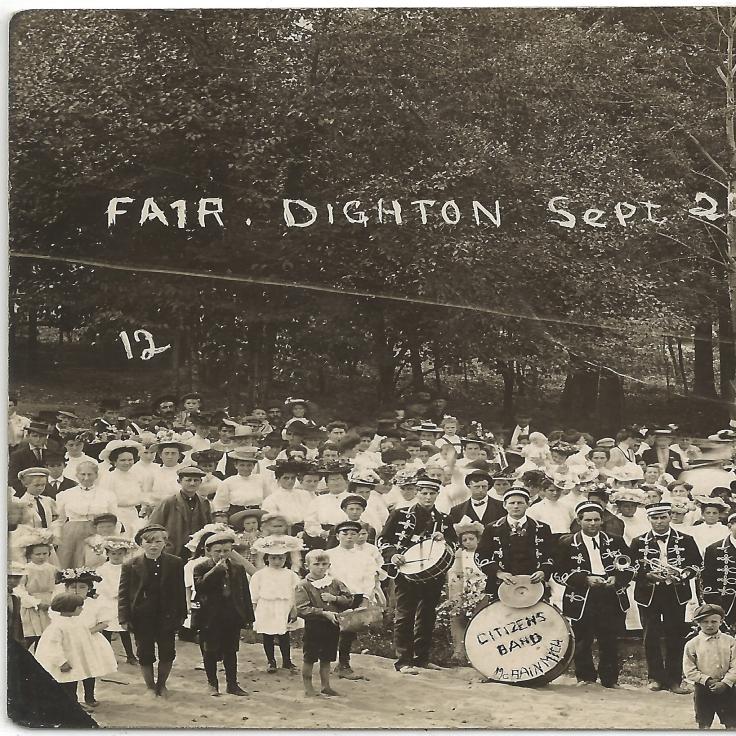 FA1R. DIGHTON Sept 2
12
CITIZENS
BAND
McBAIN MICH